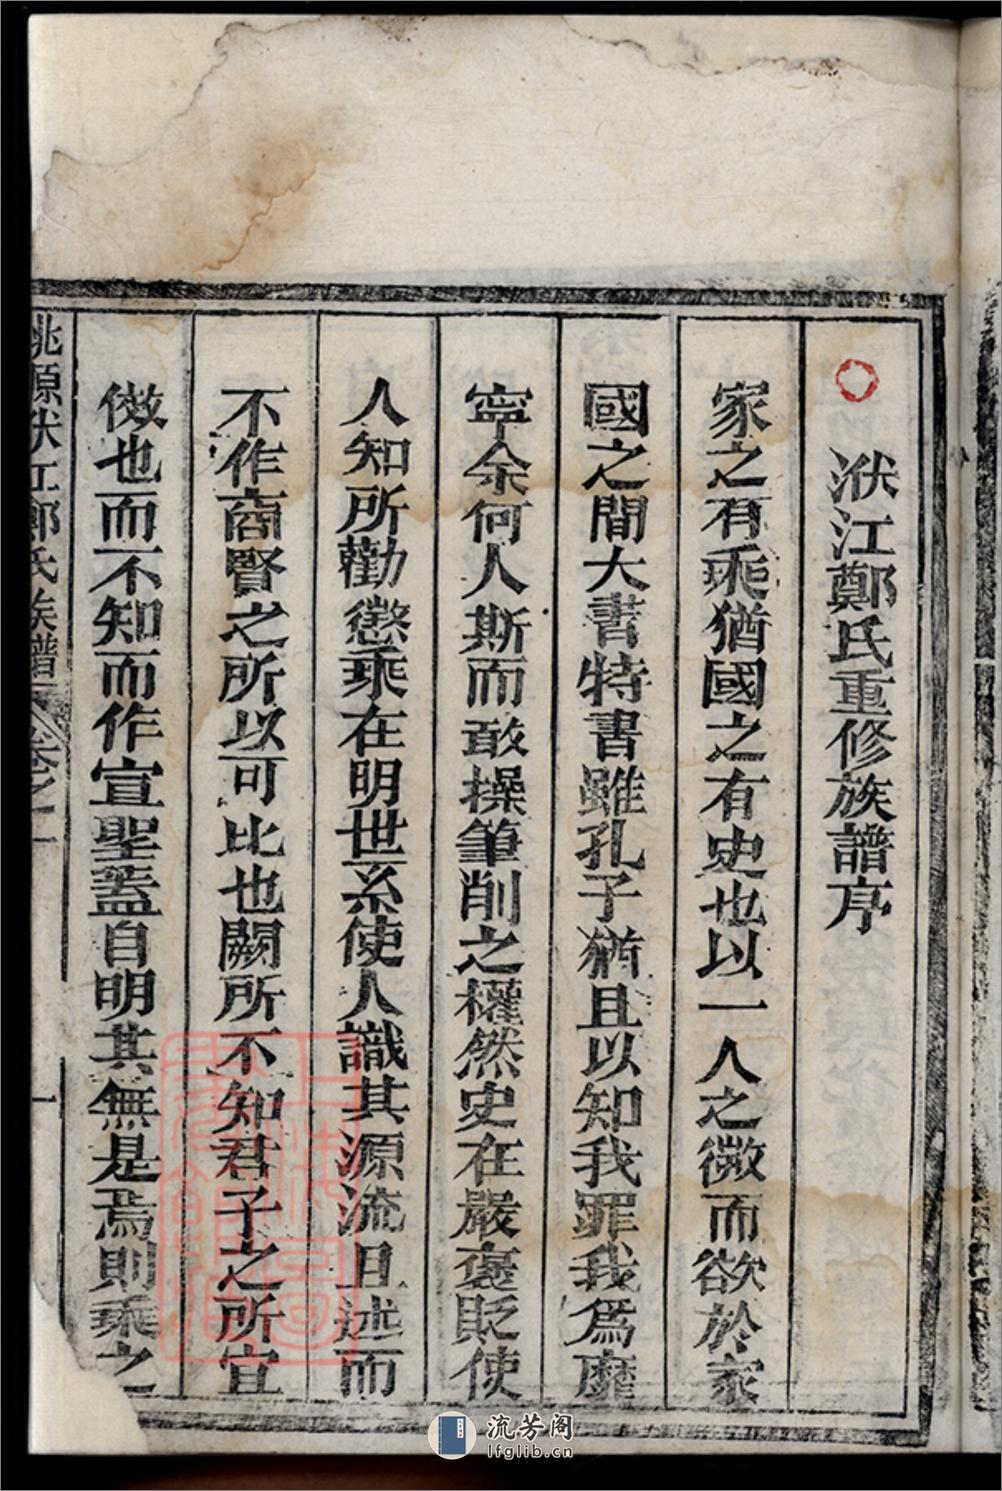 洑江鄭氏重修族譜序
家之有乘猶國之有史也以一人之微而欲於家
國之間大書特書雖孔子猶且以知我罪我爲靡
寧余何人斯而敢操筆削之權然史在嚴褒貶使
人知所勸懲乘在明世系使人識其源流且述而
不作商賢之所以可比也闕所不知君子之所宜
倣也而不知而作宣聖蓋自明其無是焉則乘之
桃源洑江鄭氏族譜 卷之一 一
流芳阁
lfglib.cn